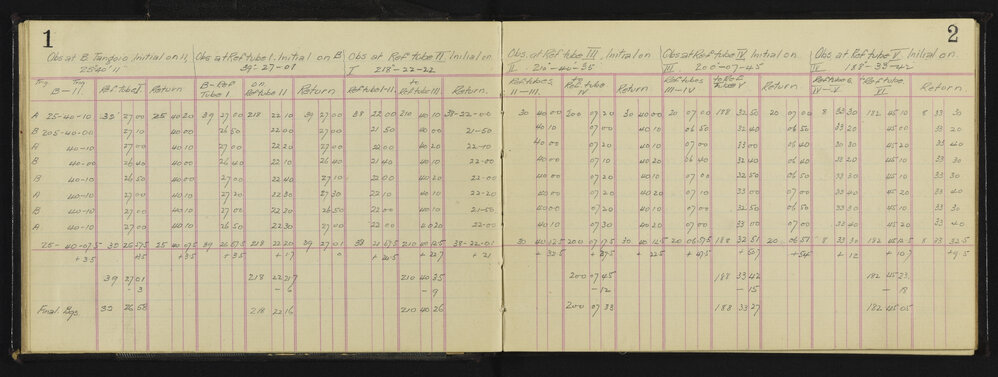 1
Obs at B Tangoio Initial on 11, Obs at Ref tube I. Initial on B Obs at Ref tube II Initial on
25°40'11" 39-27-01 I 218-22-22
Trig Trig B-11 Ref tube I Return B-Ref Tube I on Ref tube II Return Ref tube I-II to Ref tube III Return.
A 25-40-10 39 27 00 25 40 20 39 27 00 218 22 10 39 27 00 38 22 00 210 40 10 38-22-00
B 205-40-00 27 10 40 10 26 50 22 00 27 00 21 50 40 00 21-50
A 40-10 27 00 40 10 27 00 22 10 27 00 22 00 40 20 22-10
B 40-00 26 40 40 10 26 40 22 10 26 40 21 40 40 10 22-00
B 40-10 26 50 40 00 27 00 22 40 27 10 22 00 40 20 22-00
A 40-10 27 00 40 10 27 20 22 30 27 30 22 10 40 10 22-20
B 40-10 27 00 40 00 27 00 22 30 26 50 22 00 40 00 21-50
A 40-10 27 00 40 10 26 50 22 30 27 00 22 00 40 20 22-00
25-40-07.5 39 40 07.5 39 218 22 20 39 27 01 210 40 38-22-01
+3.5 +3.5 +3.5 +17 0 +20.5 +21
39 27 01 218 22 17 210 40 35
-3 -6 -9
Final Bgs. 39 26 58 218 22 16 210 40 26
2
Obs. at Ref tube III. Initial on Obs at Ref tube IV Initial on Obs at Ref tube V Initial on
II 210-40-35 III 200-07-45 IV 188-33-42
Ref tubes II-III to Ref. tube IV Return Ref tubes III-IV to Ref. tube V Return Ref tubes IV-V Ref tube VI Return
30 40 10 200 07 20 30 40 00 20 07 00 188 32 50 20 07 00 8 33 30 182 45 10 8 33 30
40 10 07 00 40 10 07 00 32 40 06 50 33 20 45 00 33 20
40 00 07 20 40 10 07 00 33 00 07 00 33 40 45 20 33 40
40 00 07 10 40 20 06 40 32 40 06 40 33 20 45 10 33 30
40 00 07 20 40 10 06 50 32 50 06 50 33 30 45 10 33 30
40 00 07 20 40 20 07 10 33 00 07 00 33 40 45 20 33 40
40 00 07 20 40 10 07 00 32 50 06 50 33 30 45 10 33 30
40 00 07 30 40 20 07 00 33 00 07 00 33 40 45 20 33 40
30 40 12.5 200 07 17.5 30 40 12.5 20 06 57.5 188 32 51 20 06 51 8 33 30 182 45 12.5 8 33 32.5
+22.5 +27.5 +22.5 +47.5 +12 +10.7 +9.5
200 07 45 188 33 42 182 45 23
-12 -15 -18
200 07 33 188 33 27 182 45 05